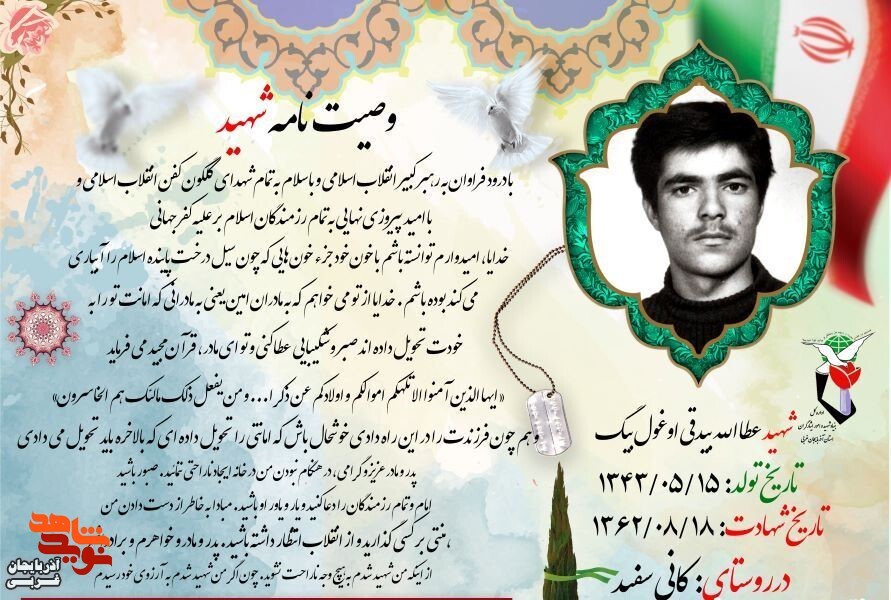 وصیت نامه شهید
بادرود فراوان به رهبر کبیر انقلاب اسلامی و باسلام به تمام شهدای گلگون کفن انقلاب اسلامی و
با امید پیروزی نهایی به تمام رزمندگان اسلام بر علیه کفر جهانی
خدایا، امیدوارم توانسته باشم با خون خود جزء خون هایی که چون سیل درخت پاینده اسلام را آبیاری
می کند بوده باشم . خدایا از تو می خواهم که به مادران امین یعنی به مادرانی که امانت تو را به
خودت تحویل داده اند صبر و شکیبایی عطا کنی و تو ای مادر، قرآن مجید می فرماید
«ایها الذین آمنوا لاتلهکم اموالکم و اولادکم عن ذکر ا... و من یفعل ذلک مالنک هم الخاسرون»
و هم چون فرزندت را در این راه دادی خوشحال باش که امانتی را تحویل داده ای که بالاخره باید تحویل می دادی
پدر و مادر عزیز و گرامی، در هنگام نبودن من در خانه ایجاد ناراحتی ننمائید. صبور باشید
امام و تمام رزمندگان را دعا کنید و یار و یاور او باشید. مبادا به خاطر از دست دادن من
، منتی بر کسی گذارید و از انقلاب انتظار داشته باشید. پدر و مادر و خواهرم و برادر
از اینکه من شهید شدم به هیچ وجه ناراحت نشوید. چون اگر من شهید شدم به آرزوی خود رسیدم
شهید عطا الله بیدقی اوغول بیگ
تاریخ تولد: ۱۳۴۳/۰۵/۱۵
تاریخ شهادت: ۱۳۶۲/۰۸/۱۸
در روستای: کانی سفید
اداره کل
بنیاد شهید و امور ایثارگران
استان آذربایجان غربی
نوید شاهد
آذربایجان
غربی